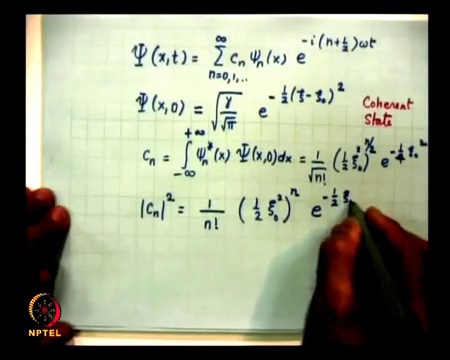 Ψ(x,t) = ∑_{n=0,1,..}^{∞} c_n ψ_n(x) e^{-i(n+½)ωt}
Ψ(x,0) = √(γ/√π) e^{-½(ξ-ξ₀)²} Coherent State
c_n = ∫_{-∞}^{+∞} ψ_n*(x) Ψ(x,0)dx = 1/√n! (½ξ₀²)^{n/2} e^{-¼ξ₀²}
|c_n|² = 1/n! (½ξ₀²)^n e^{-½ξ
NPTEL